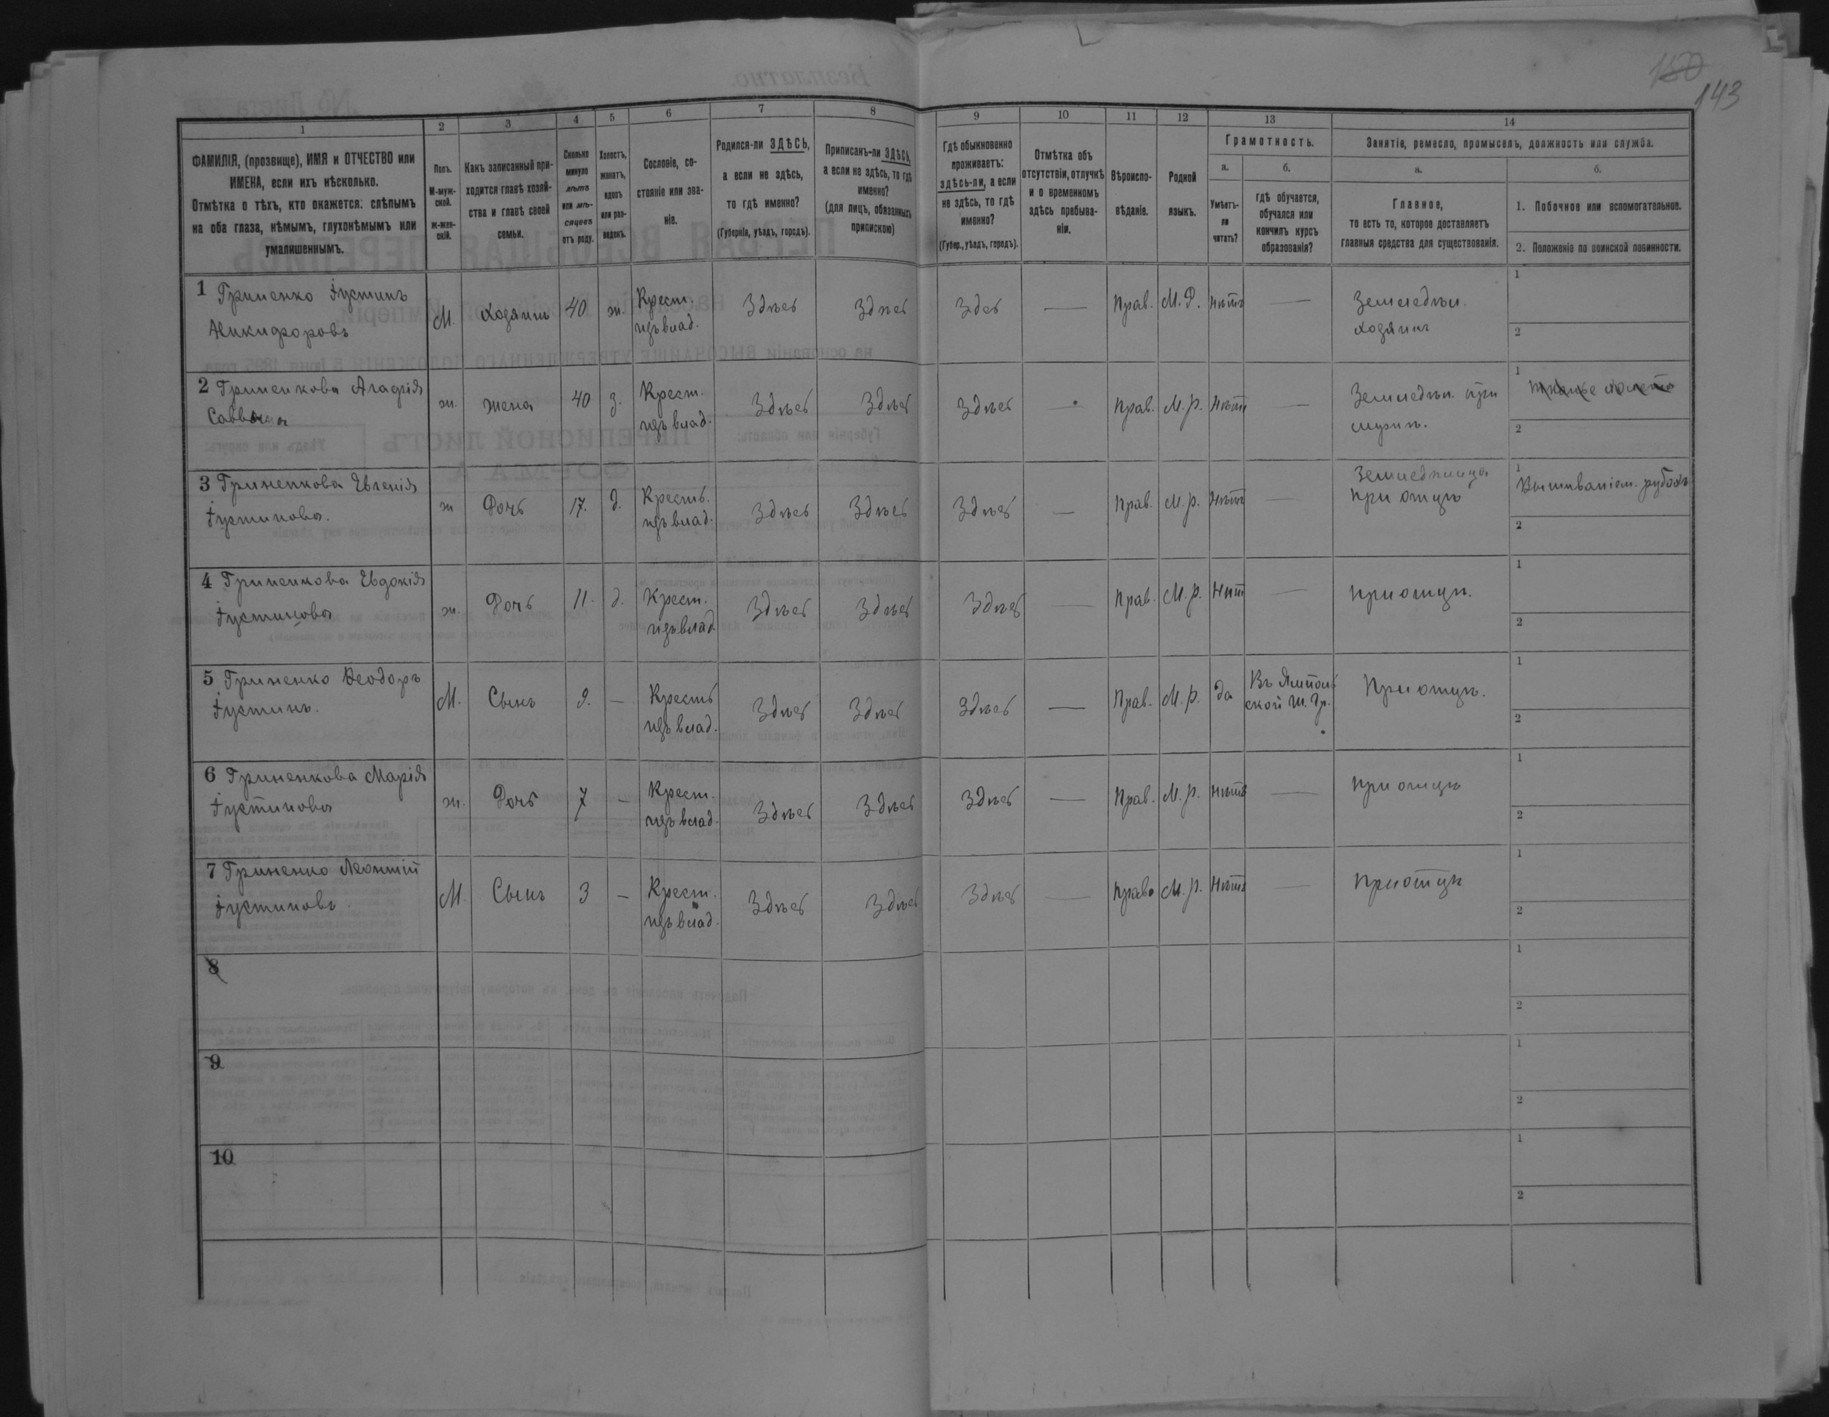 180
143
1
2
3
4
5
6
7
8
9
10
11
12
13
14
ФАМИЛІЯ, (прозвище), ИМЯ и ОТЧЕСТВО или
ИМЕНА, если ихъ нѣсколько.
Отмѣтка о тѣхъ, кто окажется: слѣпымъ
на оба глаза, нѣмымъ, глухонѣмымъ или
умалишеннымъ.
Полъ.
М-муж-
ской.
Ж-жен-
скій.
Какъ записанный при-
ходится главѣ хозяй-
ства и главѣ своей
семьи.
Сколько
минуло
лѣтъ
или мѣ-
сяцевъ
отъ роду.
Холостъ,
женатъ,
вдовъ
или раз-
веденъ.
Сословіе, со-
стояніе или зва-
ніе.
Родился-ли ЗДѢСЬ,
а если не здѣсь,
то гдѣ именно?
(Губернія, уѣздъ, городъ).
Приписанъ-ли ЗДѢСЬ,
а если не здѣсь, то гдѣ
именно?
(для лицъ, обязанныхъ
припискою)
Гдѣ обыкновенно
проживаетъ:
здѣсь-ли, а если
не здѣсь, то гдѣ
именно?
(Губер., уѣздъ, городъ).
Отмѣтка объ
отсутствіи, отлучкѣ
и о временномъ
здѣсь пребыва-
ніи.
Вѣроиспо-
вѣданіе.
Родной
языкъ.
Грамотность.
а.
Умѣетъ-
ли
читать?
б.
гдѣ обучается,
обучался или
кончилъ курсъ
образованія?
Занятіе, ремесло, промыселъ, должность или служба.
а.
Главное,
то есть то, которое доставляетъ
главныя средства для существованія.
б.
1. Побочное или вспомогательное.
2. Положеніе по воинской повинности.
1 Гриненко Іустинъ
Никифоровъ
М. Хозяинъ 40 ж. Крест.
изъ влад.
Здѣсь Здѣсь Здѣсь — Прав. М.Р. Нѣтъ —
Земледѣл.
хозяинъ
1
2
2 Гриненкова Агафія
Саввина
ж. жена 40 з. Крест.
изъ влад.
Здѣсь Здѣсь Здѣсь — Прав. М.р. Нѣтъ —
Земледѣл. при
мужѣ.
1
2
3 Гриненкова Евгенія
Іустинова.
ж Дочь 17. д. Крестъ.
изъ влад.
Здѣсь Здѣсь Здѣсь — Прав. М.р. Нѣтъ —
Земледѣлица
при отцѣ
1 Вышиваніем. рубах
2
4 Гриненкова Евдокія
Іустинова
ж. Дочь 11. д. Крест.
изъ влад
Здѣсь Здѣсь Здѣсь — Прав. М.р. Нѣт —
при отцѣ.
1
2
5 Гриненко Ѳеодоръ
Іустинъ.
М. Сынъ 9. — Крестъ
изъ влад.
Здѣсь Здѣсь Здѣсь — Прав. М.р. да Въ Ямпол
ской ш. Гр.
При отцѣ.
1
2
6 Гриненкова Марія
Іустинова
ж. Дочь 7 — Крест.
изъ влад.
Здѣсь Здѣсь Здѣсь — Прав. М.р. Нѣтъ —
при отцѣ
1
2
7 Гриненко Леонтій
Іустиновъ.
М. Сынъ 3 — Крест.
изъ влад.
Здѣсь Здѣсь Здѣсь — Право М.р. Нѣтъ —
При отцѣ
1
2
8
1
2
9
1
2
10
1
2